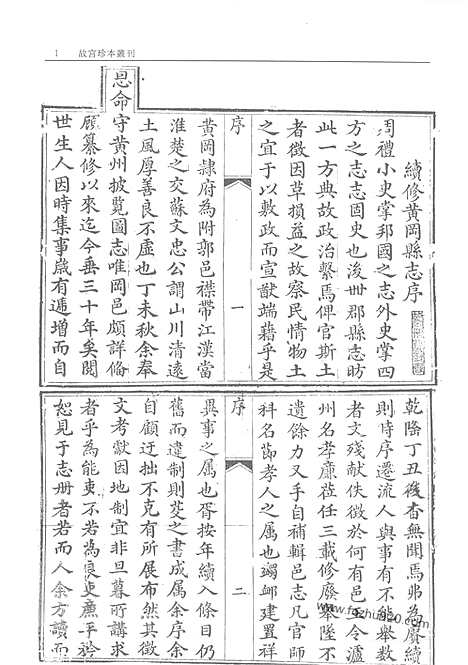 1 故宫珍本叢刊
續修黄岡縣志序
周禮小史掌邦國之志外史掌四
方之志志固史也後世郡縣志昉
此一方典故政治繫焉俾官斯土
者徵因革損益之故察民情物土
之宜于以敷政而宣猷端藉乎是
序 一
黄岡隸府為附郭邑襟帶江漢當
淮楚之交蘇文忠公謂山川清遠
土風厚善良不虛也丁未秋余奉
恩命守黄州披覽圖志唯岡邑頗詳備
顧纂修以來迄今垂三十年矣閱
世生人因時集事歲有遞增而自
乾隆丁丑後杳無聞焉弗為賡續
則時序遷流人與事有不能舉數
者文殘獻佚徵於何有邑王令瀘
州名孝廉蒞任三載修廢舉墜不
遺餘力又手自補輯邑志凡官師
科名節孝人之属也蠲卹建置祥
序 二
異事之属也按年續入條目仍
舊而違制則芟之書成属余序余
自顧迂拙不克有所展布然其徵
文考獻因地制宜非旦暮所講求
者乎為能吏不若為良吏廉平衿
恕見于志册者若而人余方讀而